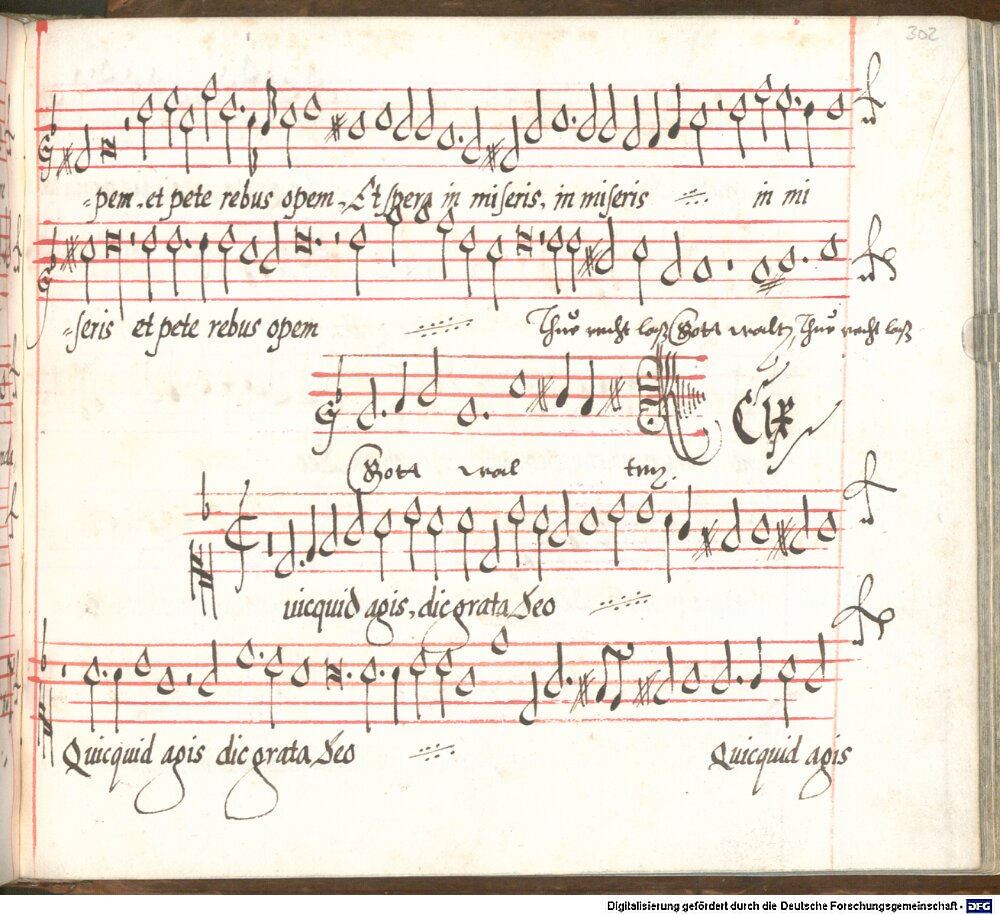 302
pem, et pete rebus opem, Et spera in miseris, in miseris in mi
seris et pete rebus opem Thue recht laß Gott walt, Thue recht laß
CIX
Gott wal
uicquid agis, dic grata Deo
Quicquid agis dic grata Deo Quicquid agis
Digitalisierung gefördert durch die Deutsche Forschungsgemeinschaft - DFG